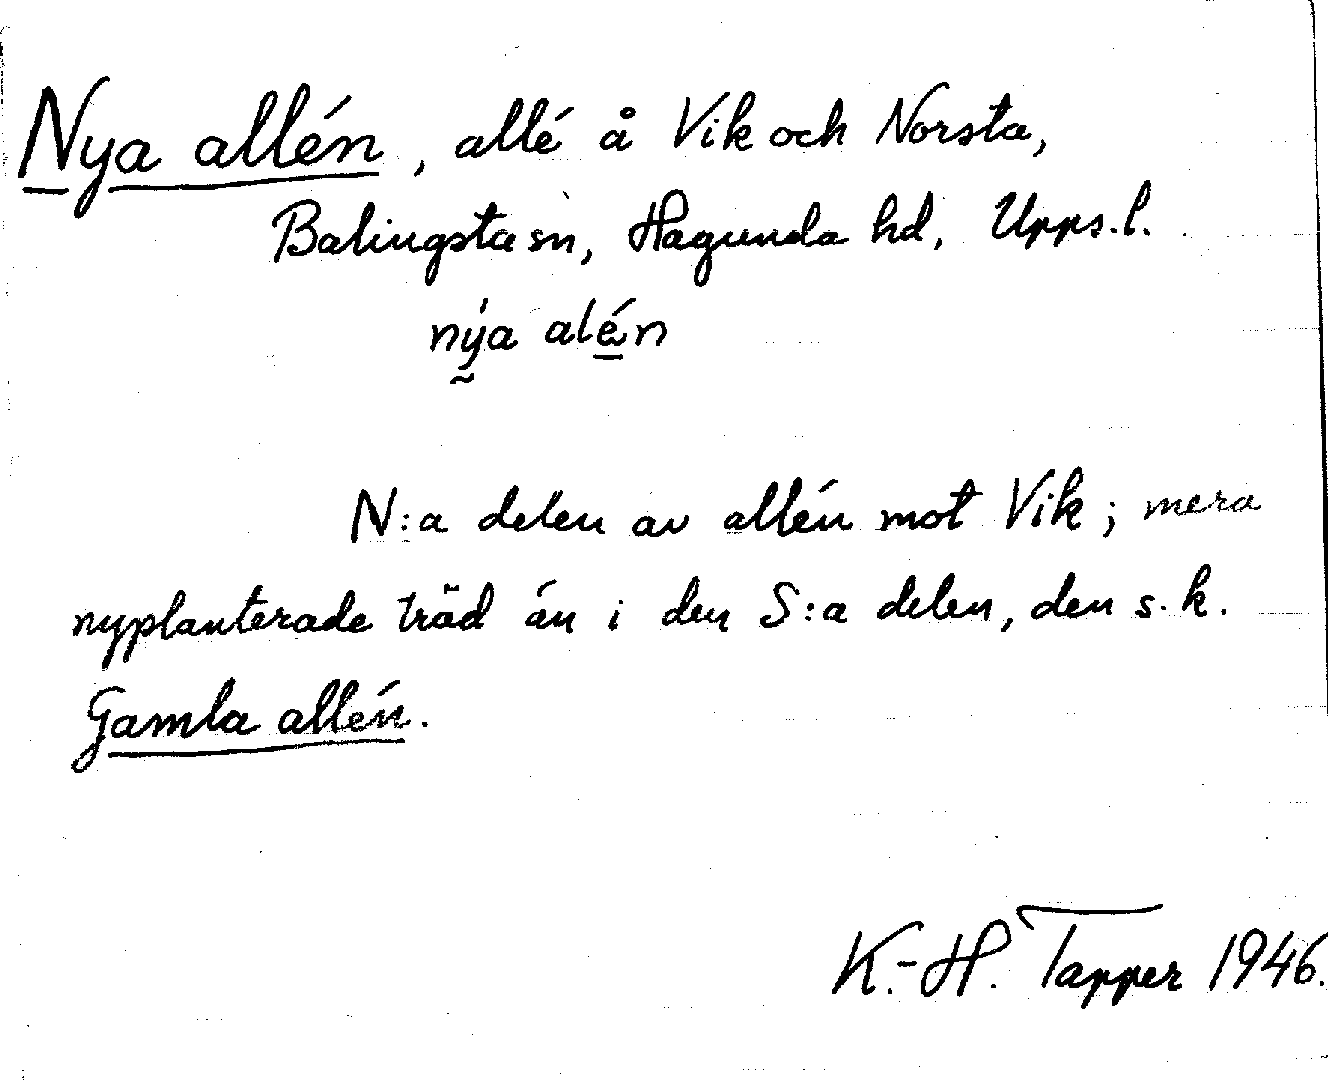 Nya allén, allé å Vik och Norsta,
Balingsta sn, Hagunda hd, Upps.l.
nýa alén
N:a delen av allén mot Vik; mera
nyplanterade träd än i den S:a delen, den s.k.
Gamla allén.
K.-H. Tapper 1946.